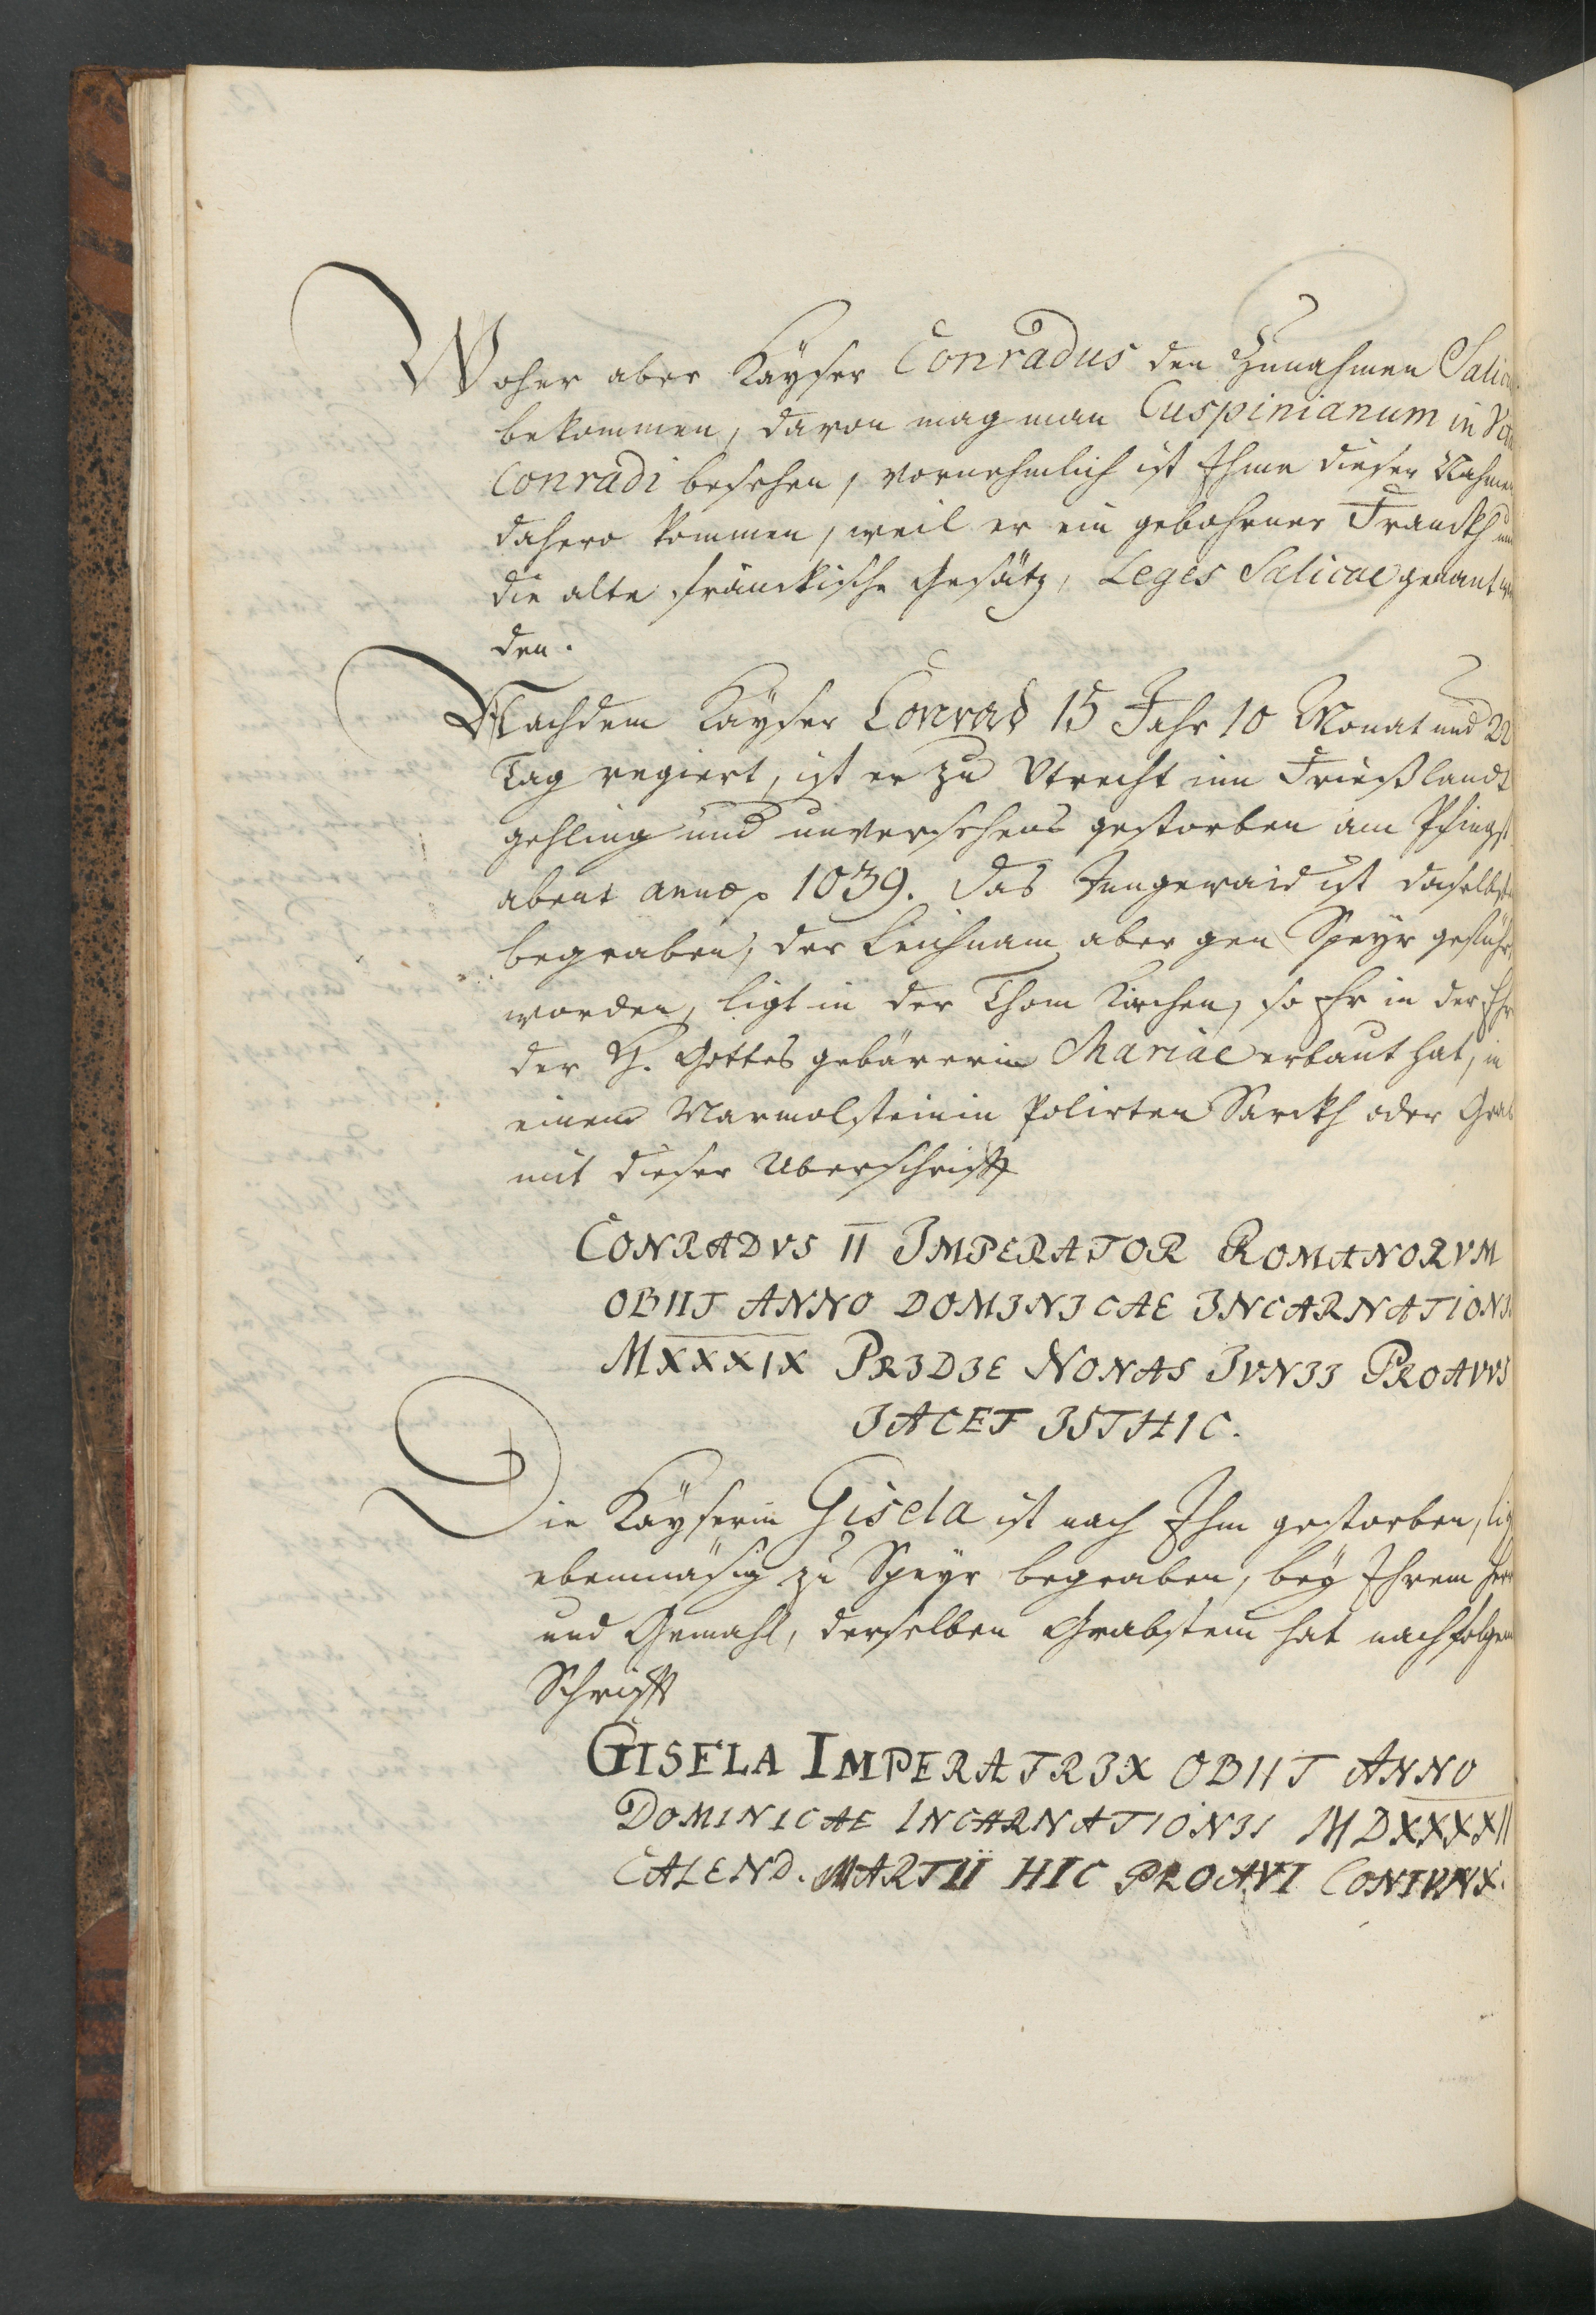 Woher aber Kayser Conradus den Zunahmen Salic
bekommen, davon mag man Cuspinianum in Vit
Conradi besehen, vornehmlich ist Ihme dieser Nahmen
dahero kommen, weil er ein gebohrner Franckh und
die alte fränckische Gesätz, Leges Salicae genant wer
den.
Nachdem Kayser Conrad 15 Jahr 10 Monat und 22
Tag regiert, ist er zu Vtrecht inn Frießlandt
gehling und unversehens gestorben am Pfingst
abent anno 1039. das Ingewaid ist daselbsten
begraben, der Leichnam aber gen Speyr geführt
worden, ligt in der Thom Kirchen, so Er in der Ehr
der H. Gottes gebärerin Mariae erbaut hat, in
einem Marmolsteinin Polirten Sarckh oder Grab
mit dieser Uberschrifft
CONRADVS II IMPERATOR ROMANORVM
OBIIT ANNO DOMINICAE INCARNATIONIS
MXXXIX PRIDIE NONAS IVNII PROAVVS
IACET ISTHIC.
Die Kayserin Gisela ist nach Ihm gestorben, lig
ebenmäsig zu Speyr begraben, bey Ihrem Herr
und Gemahl, derselben Grabstein hat nachfolgen
Schrifft
GISELA IMPERATRIX OBIIT ANNO
DOMINICAE INCARNATIONIS MDXXXXII
CALEND. MARTII HIC PROAVI CONIVNX.